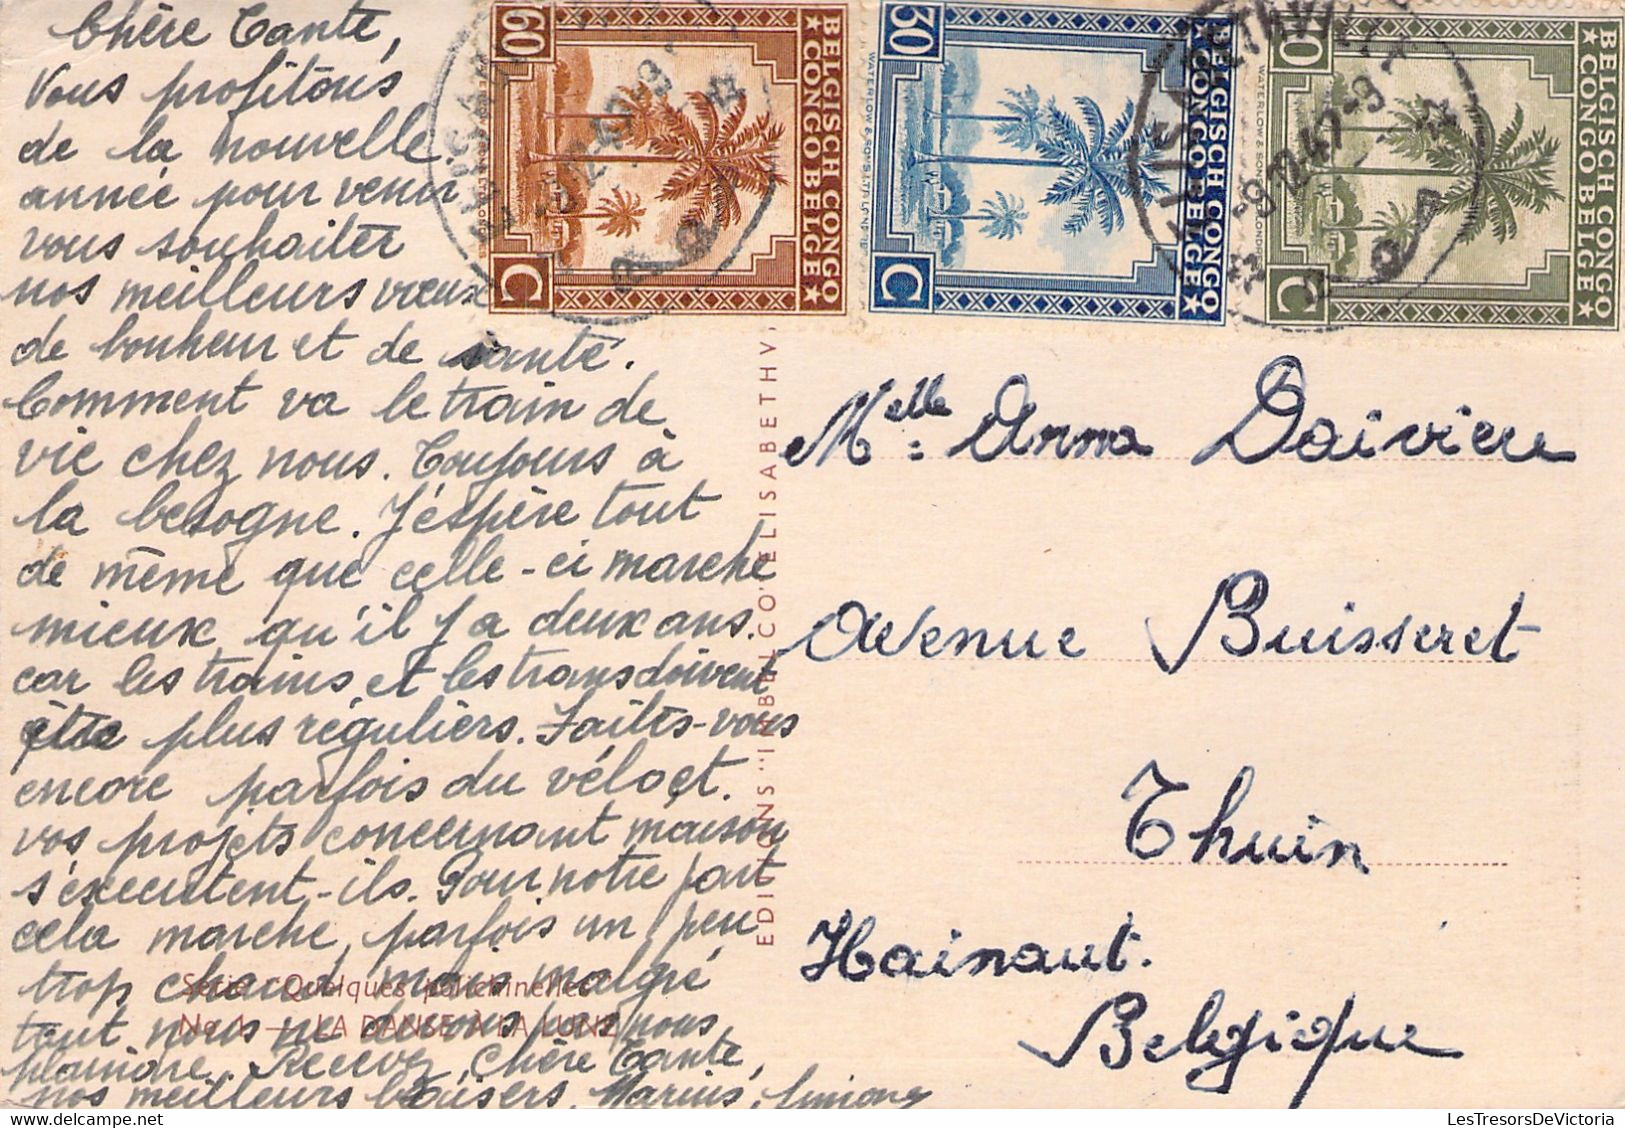 Chère Tante,
Vous profitons
de la nouvelle
année pour venir
vous souhaiter
nos meilleurs vœux
de bonheur et de santé.
Comment va le train de
vie chez nous. Toujours à
la besogne. J'éspère tout
de même que celle-ci marche
mieux qu'il y a deux ans.
car les trains et les trams doivent
être plus réguliers. Faites-vous
encore parfois du vélo et.
vos projets concernant maison
s'executent-ils. Pour notre part
cela marche, parfois un peu
trop chaud, mais malgré
tout nous ne devons pas nous
plaindre. Recevez, Chère Tante,
nos meilleurs baisers. Marius, Simone
Série "Quelques polichinelles"
No 1 — LA DANSE À LA LUNE
EDITIONS "INBELCO" ELISABETHV
60 C
BELGISCH CONGO
★ CONGO BELGE ★
30 C
BELGISCH CONGO
CONGO BELGE ★
WATERLOW & SONS LTD LONDRES
0 C
BELGISCH CONGO
★ CONGO BELGE ★
12-47-9
Melle: Anna Daivieu
Avenue Buisseret
Thuin
Hainaut.
Belgique
LesTresorsDeVictoria